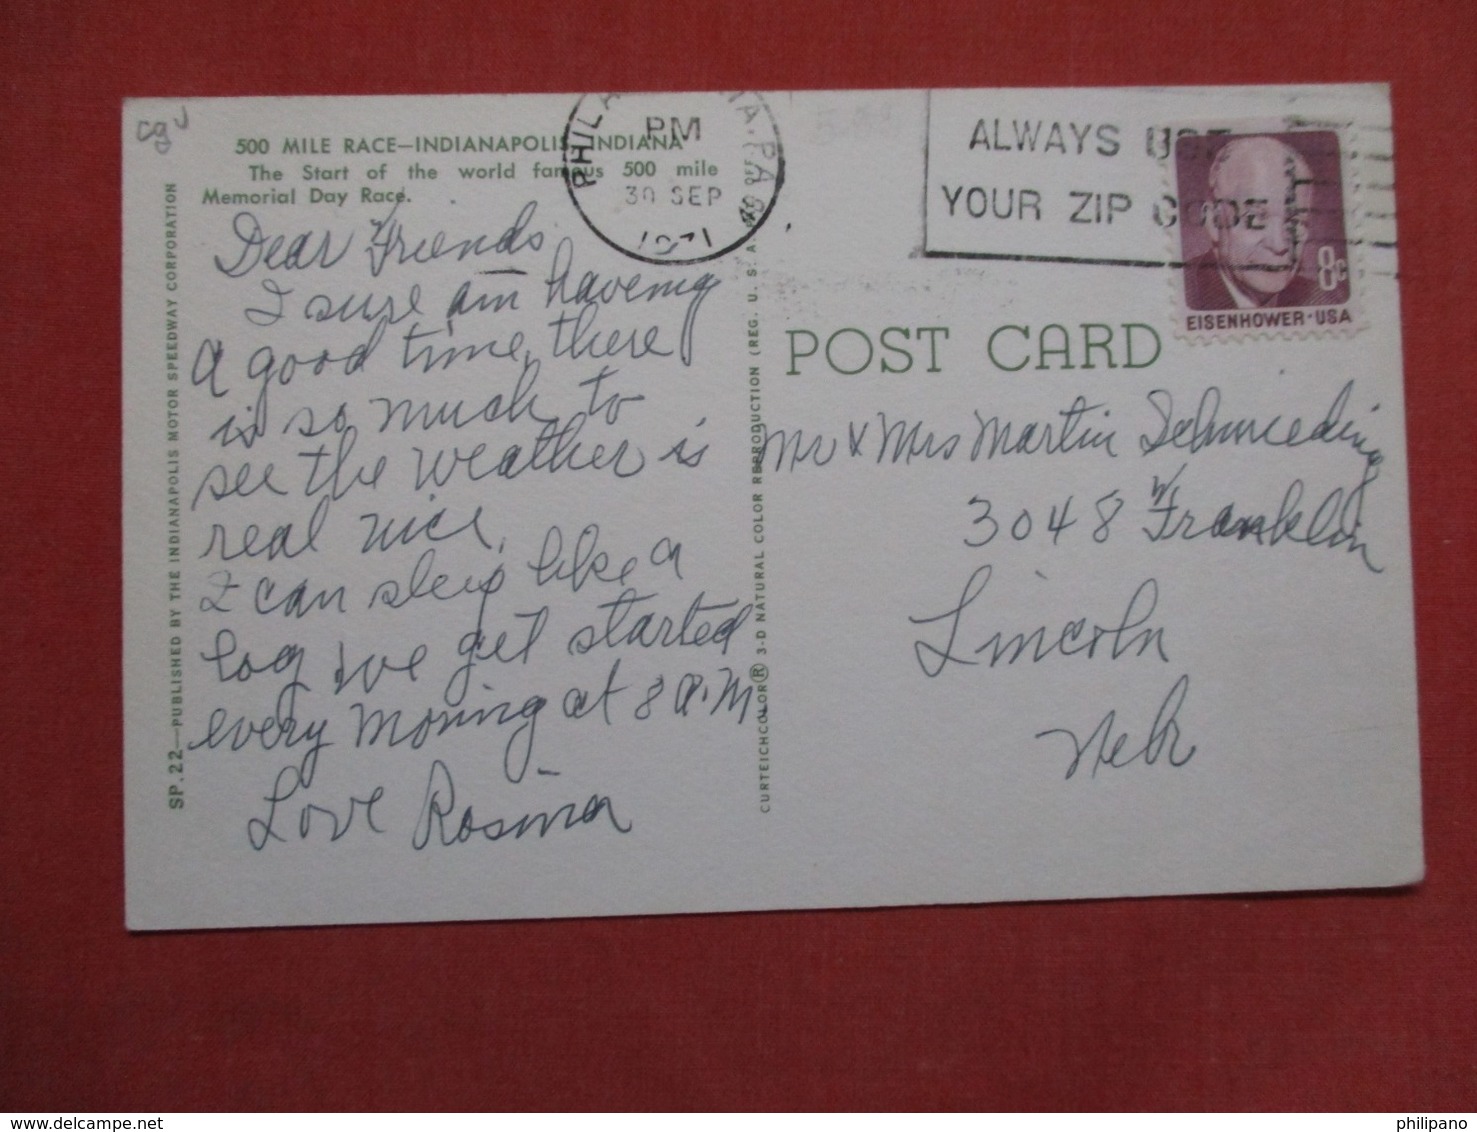 cg
500 MILE RACE—INDIANAPOLIS, INDIANA
The Start of the world famous 500 mile
Memorial Day Race.
Dear Friends,
I sure am haveing
a good time, there
is so much to
see the weather is
real nice.
I can sleep like a
log we get started
every Morning at 8 A.M.
Love Rosina
SP. 22—PUBLISHED BY THE INDIANAPOLIS MOTOR SPEEDWAY CORPORATION
CURTEICHCOLOR® 3-D NATURAL COLOR REPRODUCTION (REG. U. S. A.
PHILA PA
PM
30 SEP
1971
ALWAYS USE
YOUR ZIP CODE
8c
EISENHOWER·USA
POST CARD
Mr & Mrs Martin Schmieding
3048 W Franklin
Lincoln
Nebr
philipano